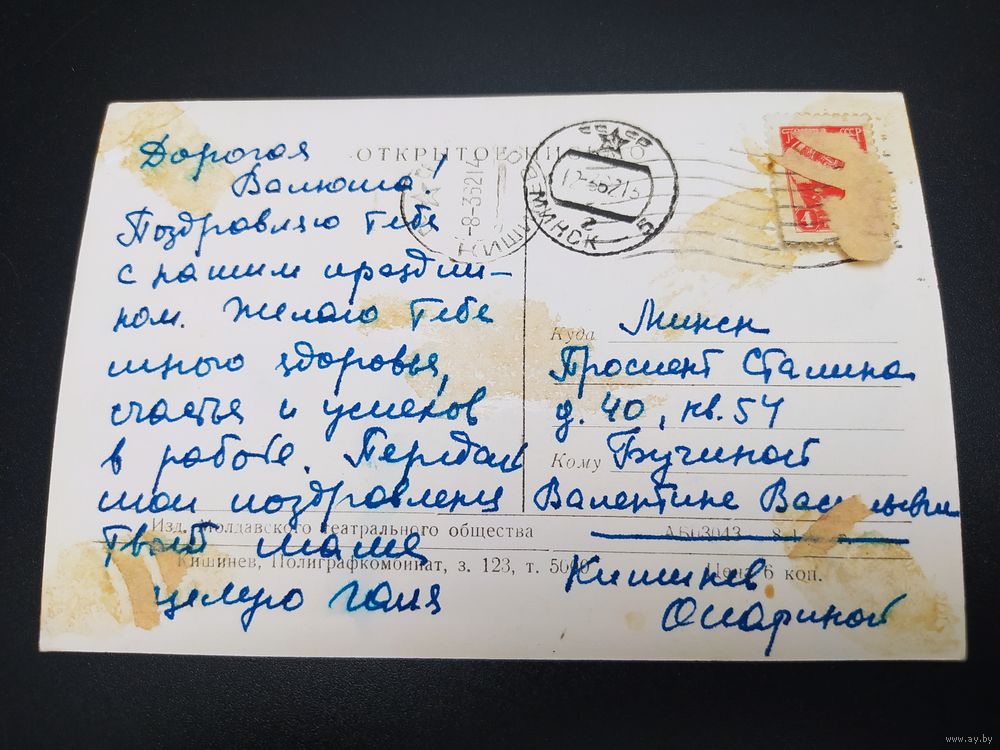 ОТКРЫТОЕ
Дорогая
Валюша!
Поздравляю тебя
с нашим праздни-
ком. Желаю тебе
много здоровья,
счастья и успехов
в работе. Передай
мои поздравления
твоей маме
целую Галя
СССР
МИНСК
СССР
4
Куда Минск
Проспект Сталина
д. 40, кв. 54
Кому Бучиной
Валентине Васильевне
Изд. Молдавского театрального общества
АБ03043
Кишинев, Полиграфкомбинат, з. 123, т. 5000
Цена 6 коп.
Кишинев
www.ay.by